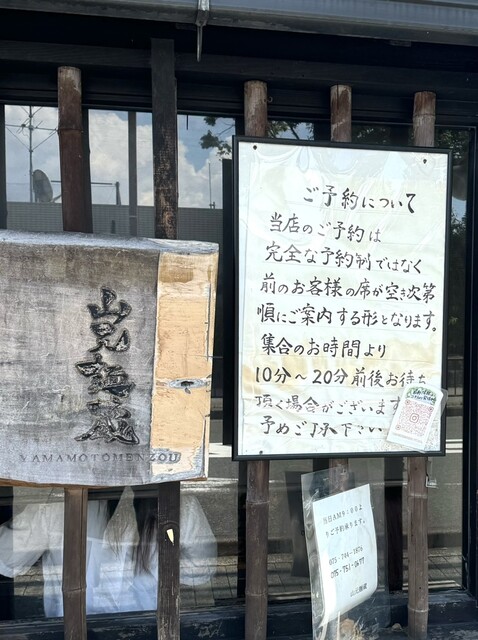 山元麺蔵
YAMAMOTOMENZOU
ご予約について
当店のご予約は
完全な予約制ではなく
前のお客様の席が空き次第
順にご案内する形となります。
集合のお時間より
10分～20分前後お待ち
頂く場合がございます
予めご了承下さい
当日AM9:00よ
りご予約承ります。
075-744-1876
075-751-0677
山元麺蔵